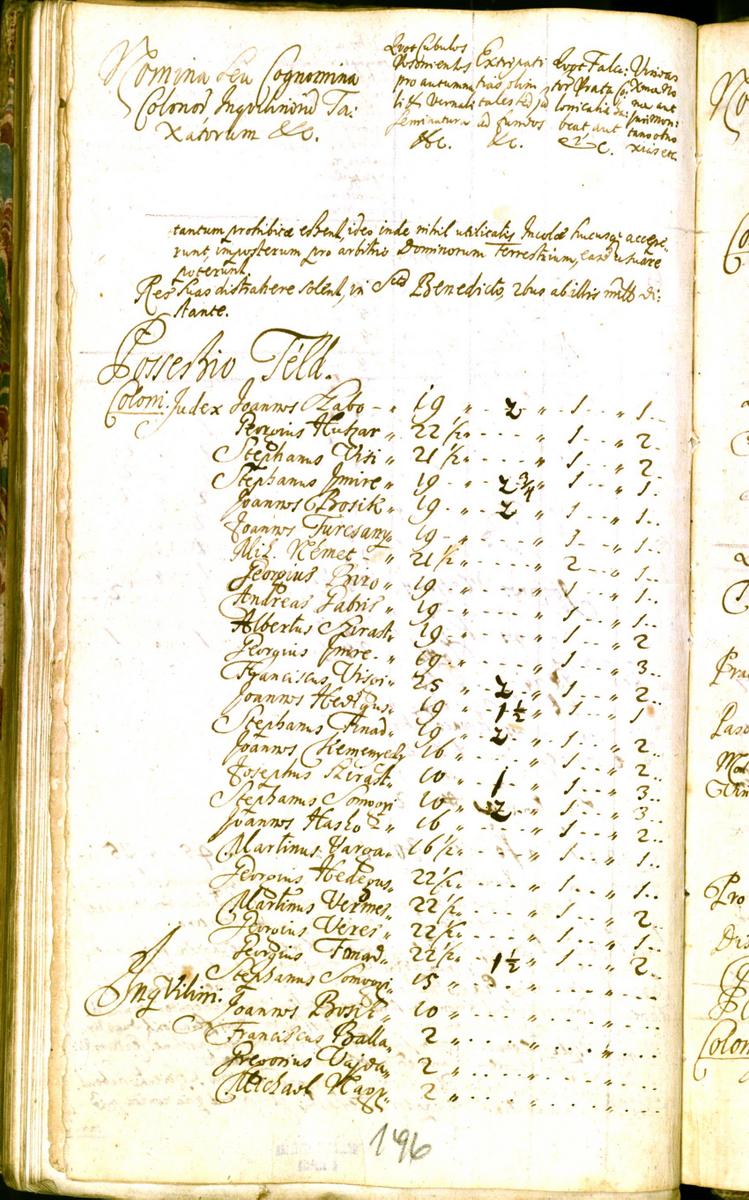 Nomina seu Cognomina
Colonor Inqvilinorũ Ta:
xatorum &c.
Qvot Cubulos
Posonienses
pro autumna
li & Vernali
seminatura
&c.
Extirpati
tias olim
tales sed jã
ad fundos
&c.
Qvot Falca:
tor Prata Co:
lonicalia ha:
beat aut
&c.
tantum prohibitæ essent, ideo inde nihil utilitatis Incolæ hucusq accepe:
runt, imposterum pro arbitrio Dominorum Terrestrium, easd usuare
poterunt.
Res suas distrahere solent, in Sct Benedicto, 2bus ab illis mlb di:
stante.
Possessio Téld.
Coloni. Judex Joannes Szabo - " 19 " 2 " 1 " 1
Georgius Huszar " 22 1/2 " 1 " 2
Stephanus Visi " 21 1/2 " 1 " 2
Stephanus Imire " 19 " 2 3/4 " 1 " 1
Joannes Bosik " 19 " 2 " 1 " 1
Joannes " 19 " 1 " 1
Mih. Német " 21 1/2 " 2 " 1
Georgius Biro " 19 " 1 " 1
Andreas Gabris " 19 " 1 " 1
Albertus Szirast " 19 " 1 " 2
Georgius Imre " 19 " 1 " 3
Franciscus " 25 " 2 " 1 " 2
Joannes Hedegus " 19 " 1 1/2 " 1 " 1
Stephanus " 19 " 2 " 1 " 2
Joannes Kemenyely " 16 " 1 " 2
Josephus Szirast " 10 " 1 " 1 " 3
Stephanus Somogyi " 10 " 2 " 1 " 3
Joannes Hasko " 16 " 1 " 2
Martinus Varga " 16 1/2 " 1 " 1
Georgius Hedegus " 22 1/2 " 1 " 1
Martinus Vermes " 22 1/2 " 1 " 2
Georgius Veres " 22 1/2 " 1 " 1
Georgius " 22 1/2 " 1 1/2 " 1 " 2
Stephanus Somogyi " 15 "
Inqvilini. Joannes Bosik " 10 "
Franciscus Balla " 2 "
Gregorius Vajda " 2 "
Michael Nagy " 2 "
196